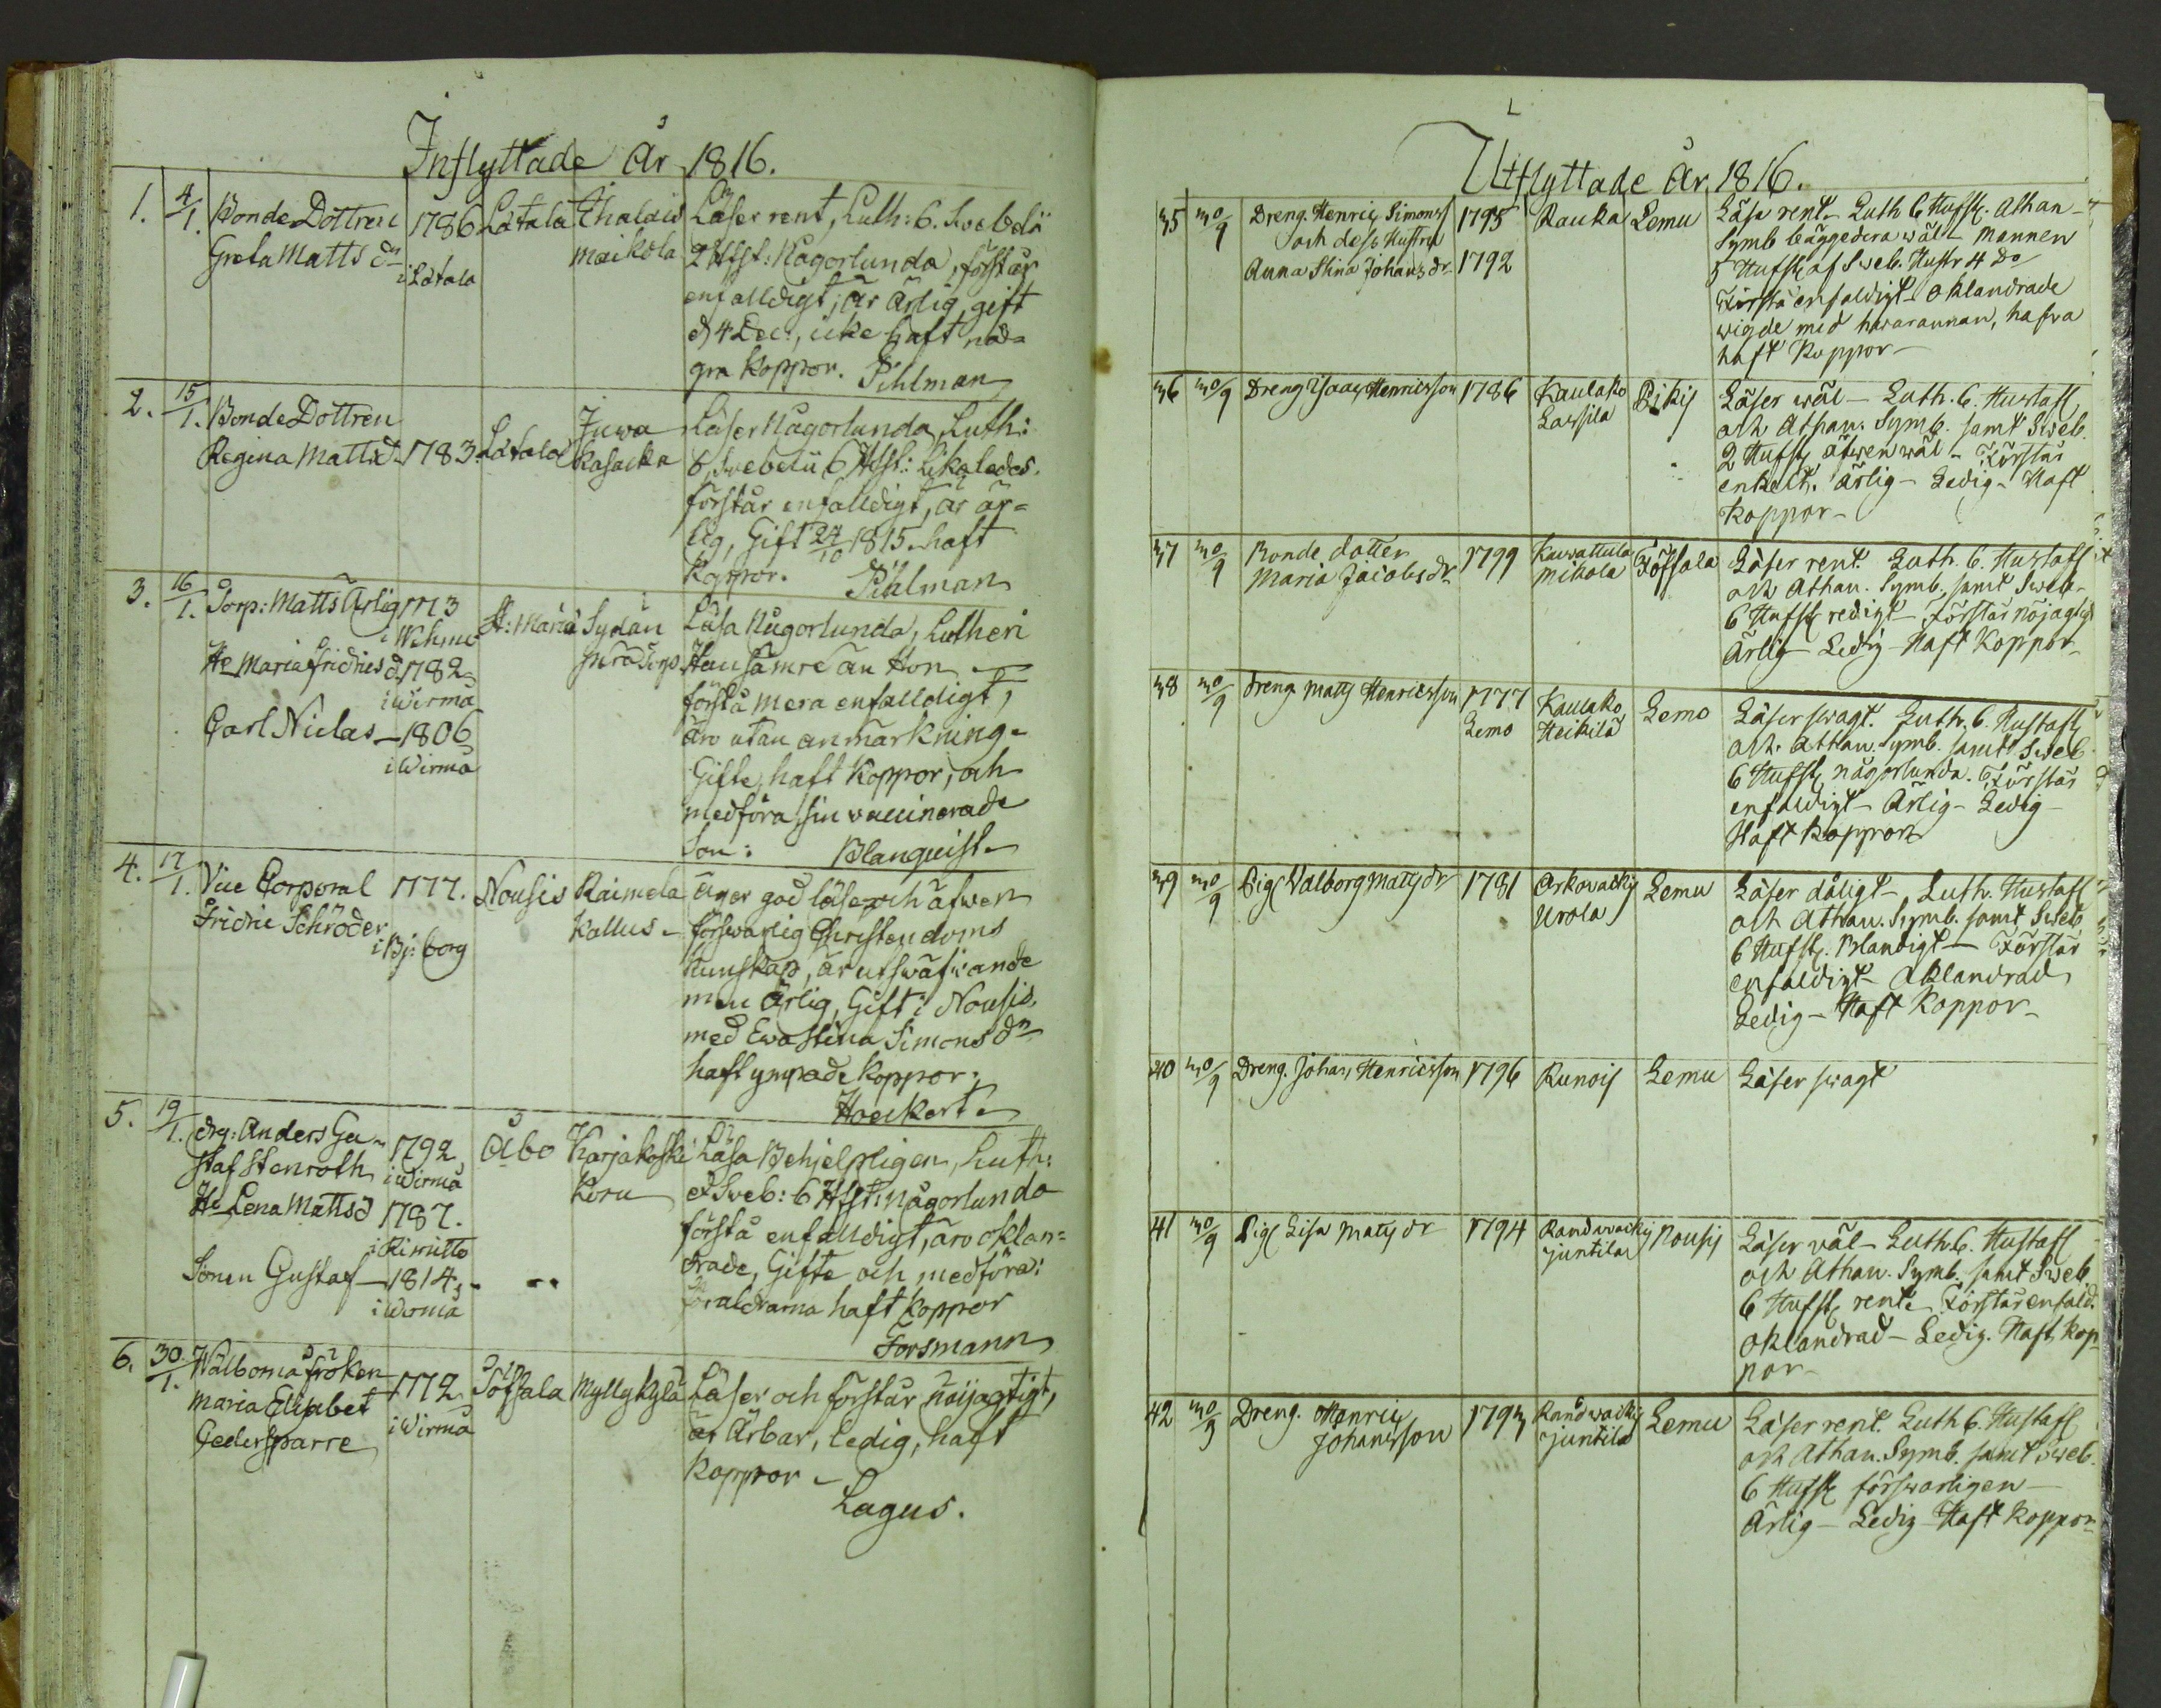 Inflyttade År 1816.
1. 4/1. Bonde Dottren 1786 Låtala Thalais Läser rent, Luth: 6. Swebelii
Greta Matts dr i Låtala maikola 2 Hfst: Någorlunda, förstår
enfalldigt, är Ärlig, gift
d 4 Dec:, icke haft nå=
gra Koppor. Pihlman
2. 15/1. Bonde Dottren Juwa Läser Någorlunda, Luth:
Regina Mattsd. 1783. Låtala Kasacka 6 Swebelii 6 Hfst: Likaledes.
förstår enfalldigt, är är=
lig, Gift 27/10 1815. haft
Koppor. Pihlman
3. 16/1. Torp: Matts Ärlig 1773 St: Maria Sydän Läsa Någorlunda, Lutheri
i Wehmo
Hu Maria Fridrics d. 1782 Han sämre än Hon
i Wirmå förstå mera enfalldigt,
Carl Niclas 1806 äro utan anmärkning
i Wirmå Gifte, haft Koppor, och
medföra sin vaccinerade
Son: Blanquist
4. 17/1. Vice Corporal 1777. Nousis Raimela äger god läse och äfwen
Fridric Schröder Kallus förswarlig Christendoms
i Bj:borg Kunskap, är utswäfwande
men Ärlig, Gift i Nousis,
med Ewa Stina Simons dr
haft ympade koppor.
Hoeckert
5. 19/1. drg: Anders Gu- 1792 Åbo Karjakoski Läsa Behjelpligen, Luth:
staf Stenroth i Wirmå Koru et Sweb: 6 Hfst: någorlunda
Hu Lena Mattsd 1787. förstå enfalldigt, äro oklan=
i Rimitto drade, Gifte och medföra:
Sonen Gustaf 1814, föräldrarna haft Koppor
i Wirmå Forsmann
6. 30/1. Wälborna fröken 1772 Töfsala Myllykylä Läser och förstår näijagtigt,
Maria Elisabet i Wirmå är Ärbar, ledig, haft
Cedersparre Koppor
Lagus.
Utflyttade År 1816.
35 30/9 Dreng Henric Simonss 1795 Rauka Lemu Läsa rent Luth 6 Hufst. Athan
och dess Hustru Symb bäggedera wäl Mannen
Anna Stina Johans dr 1792 5 Hufst af Sweb. Hustr 4 do
Förstå enfaldigt oklandrade
wigde med hwarannan, hafva
haft Koppor
36 30/9 Dreng Isaac Henricsson 1786 Kaulako Pikis Läser wäl Luth. 6. Hustafl
Lassila och Athan. Symb. samt Sweb.
2 Hufst äfwen wäl Förstår
enkelt. Ärlig Ledig Haft
Koppor
37 30/9 Bonde dotter 1799 Kuwattula Töfsala Läser rent. Luth. 6. Hustafl
Maria Jacobs dr. Mikola och Athan. Symb. samt Sweb.
6 Hufst redigt Förstår nöjagtigt
Ärlig Ledig Haft Koppor
38 30/9 dreng Matts Henricsson 1777 Kaulako Lemo Läser swagt. Luth. 6. Hustafl
Lemo Heikilä och Athan. Symb. samt Sweb
6 Hufst någorlunda. Förstår
enfaldigt Ärlig Ledig
Haft Koppor
39 30/9 Pig Walborg Mats dr 1781 Arkowacky Lemu Läser dåligt Luth. Hustafl
Urola och Athan. Symb. samt Sweb.
6 Hufst. Blandigt Förstår
enfaldigt oklandrad
Ledig Haft Koppor
40 30/9 Dreng. Johan Henricsson 1796 Runois Lemu Läser swagt
41 30/9 Pig Lisa Mats dr 1794 Randwacky Nousis Läser väl Luth. 6. Hustafl
Juntila och Athan. Symb. samt Sweb.
6 Hufst rent. Förstår enfald.
oklandrad Ledig. Haft Kop
por
42 30/9 Dreng. Henric 1793 Randwacky Lemu Läser rent. Luth 6. Hustafl
Johansson Juntila och Athan. Symb. samt Sweb.
6 Hufst förswarligen
Ärlig Ledig Haft Koppor